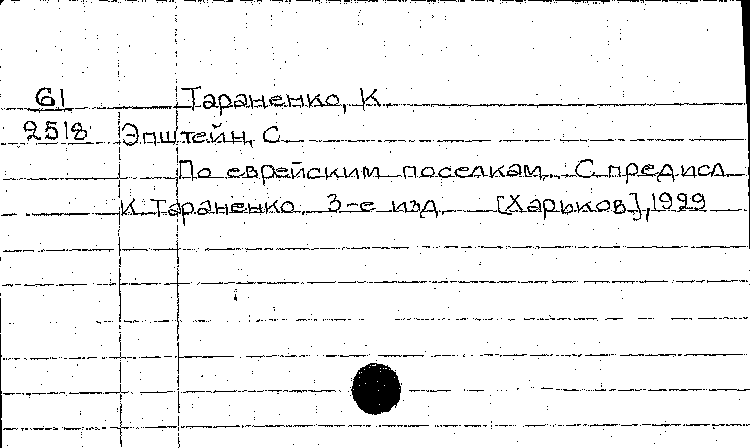 61 Тараненко, К.
2518 Эпштейн, С.
По еврейским поселкам. С предисл.
К. Тараненко. 3-е изд. [Харьков], 1929